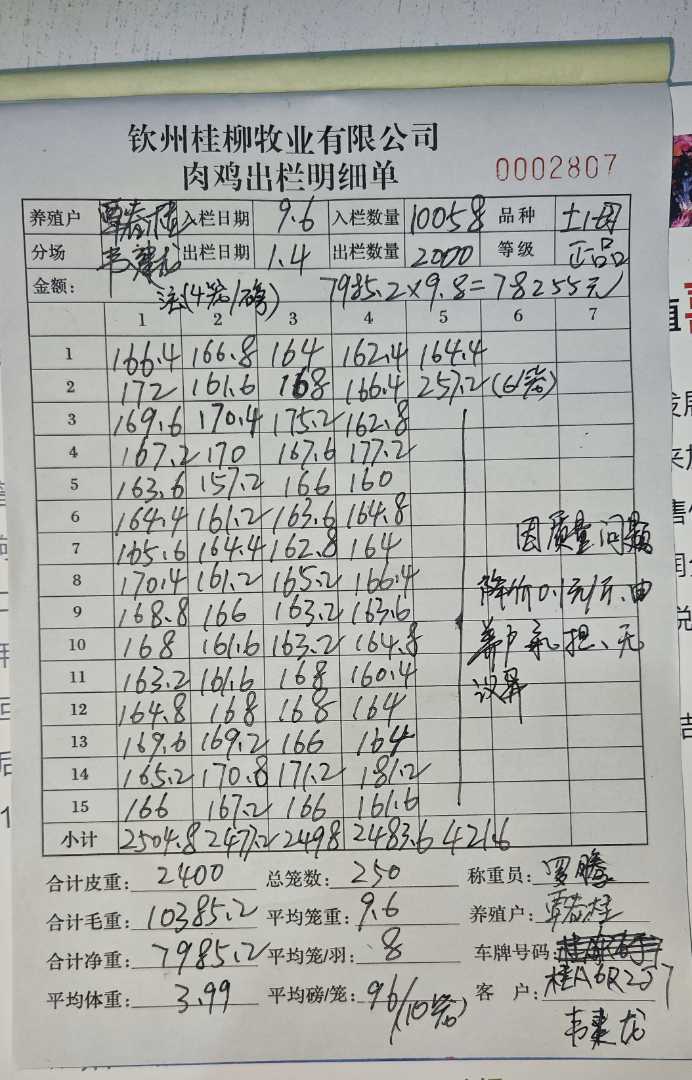 钦州桂柳牧业有限公司
肉鸡出栏明细单 0002807
养殖户 入栏日期 9.6 入栏数量 10058 品种
分场 出栏日期 1.4 出栏数量 2000 等级 正品
金额: 7985.2×9.8=78255元
注(4笼/磅)
1 2 3 4 5 6 7
1 166.4 166.8 164 162.4 164.4
2 172 161.6 168 166.4 257.2 (6笼)
3 169.6 170.4 175.2 162.8
4 167.2 170 167.6 177.2
5 163.6 157.2 166 160
6 164.4 161.2 163.6 164.8
7 165.6 164.4 162.8 164
8 170.4 161.2 165.2 166.4
9 168.8 166 163.2 163.6
10 168 161.6 163.2 164.8
11 163.2 161.6 168 160.4
12 164.8 168 168 164
13 169.6 169.2 166 164
14 165.2 170.8 171.2 181.2
15 166 167.2 166 161.6
因质量问题
降价0.1元/斤、由
养户承担、无
议异
小计 2504.8 2477.2 2498 2483.6 421.6
合计皮重: 2400 总笼数: 250 称重员: 罗腾
合计毛重: 10385.2 平均笼重: 9.6 养殖户:
合计净重: 7985.2 平均笼/羽: 8 车牌号码:
平均体重: 3.99 平均磅/笼: 96/(10笼) 客 户: